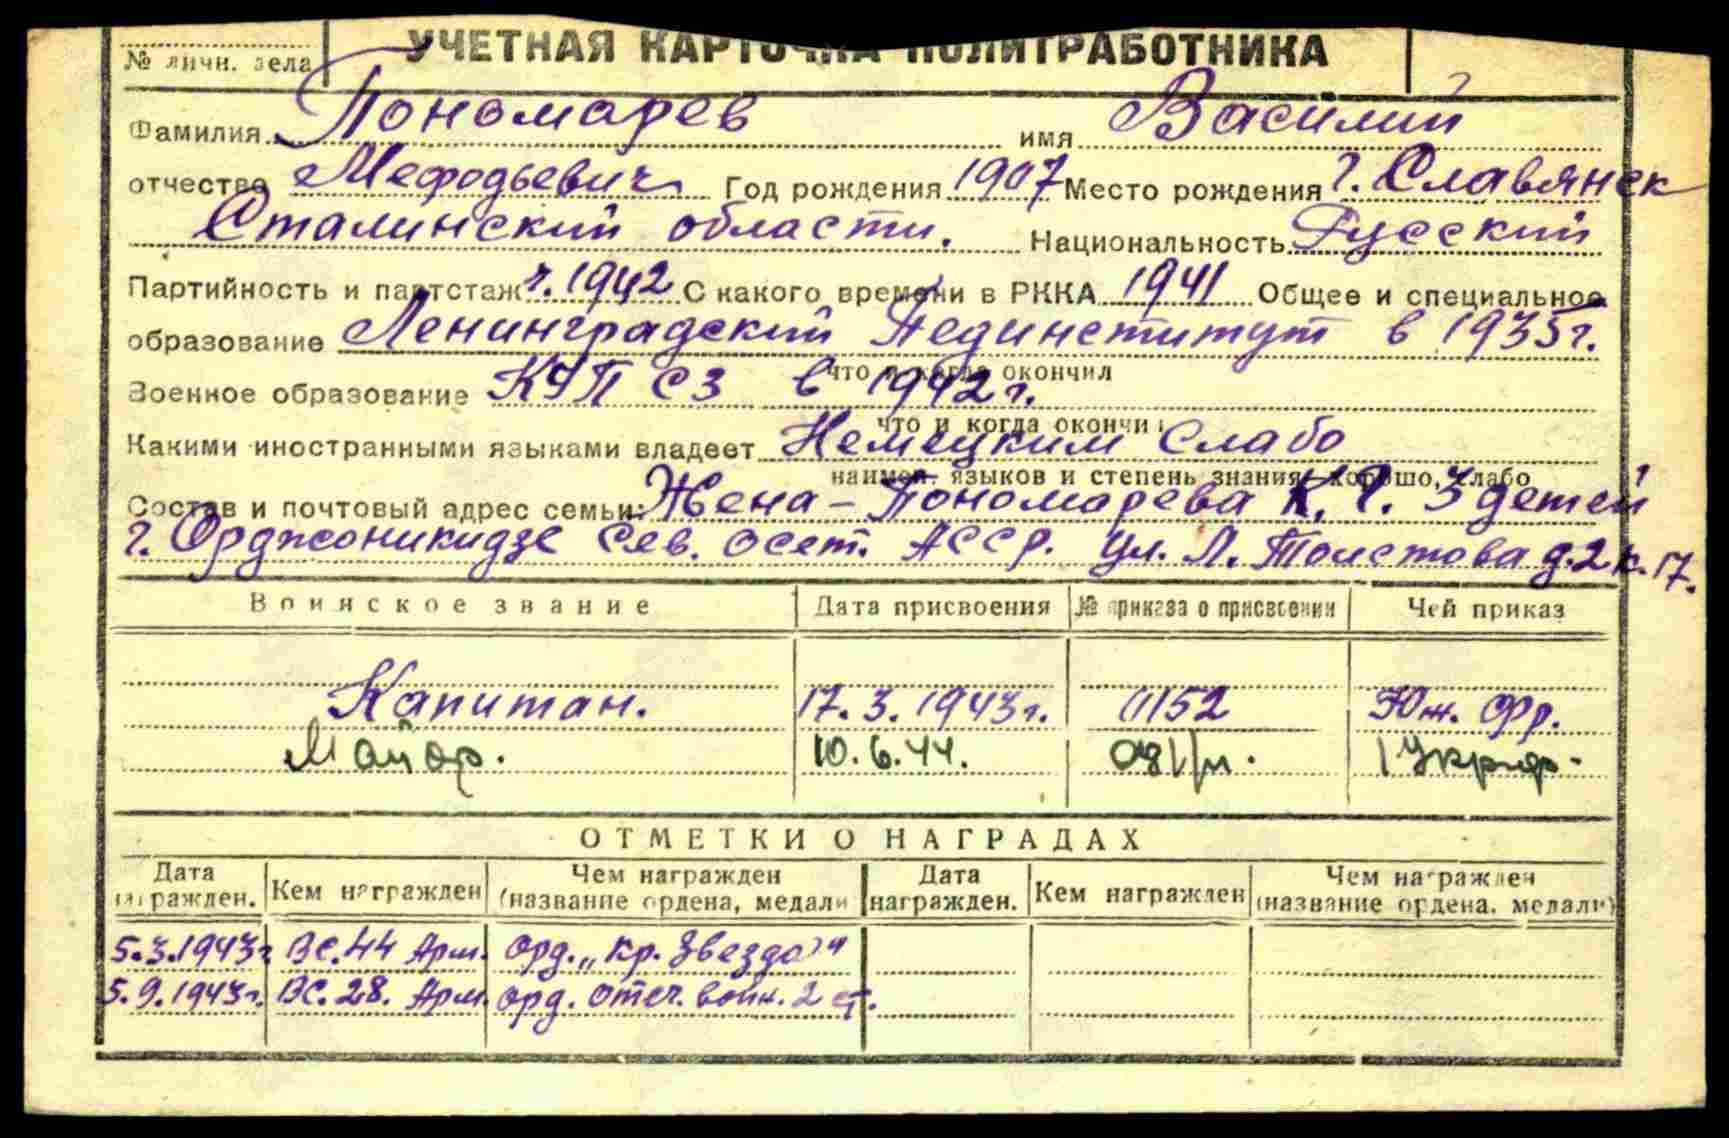 № личн. дела
УЧЕТНАЯ КАРТОЧКА ПОЛИТРАБОТНИКА
Фамилия Пономарев имя Василий
отчество Мефодьевич Год рождения 1907 Место рождения г. Славянск
Сталинский области. Национальность Русский
Партийность и партстаж ч. 1942 С какого времени в РККА 1941 Общее и специальное
образование Ленинградский Пединститут в 1935 г.
что и когда окончил
Военное образование КУПСЗ в 1942 г.
что и когда окончи
Какими иностранными языками владеет Немецким слабо
наимен. языков и степень знания—хорошо, слабо
Состав и почтовый адрес семьи: Жена – Пономарева К. Г. 3 детей
г. Орджоникидзе Сев. Осет. АССР. ул. Л. Толстова д. 2 к. 17.
Воинское звание Дата присвоения № приказа о присвоении Чей приказ
Капитан. 17.3.1943 г. 0152 Юж. Фр.
Майор. 10.6.44. 1 Укр.фр.
ОТМЕТКИ О НАГРАДАХ
Дата награжден. Кем награжден Чем награжден (название ордена, медали Дата награжден. Кем награжден Чем награжден (название ордена, медали)
5.3.1943 г. ВС. 44 Арм. орд. „Кр. Звезда"
5.9.1943 г. ВС. 28. Арм. орд. Отеч. войн. 2 ст.